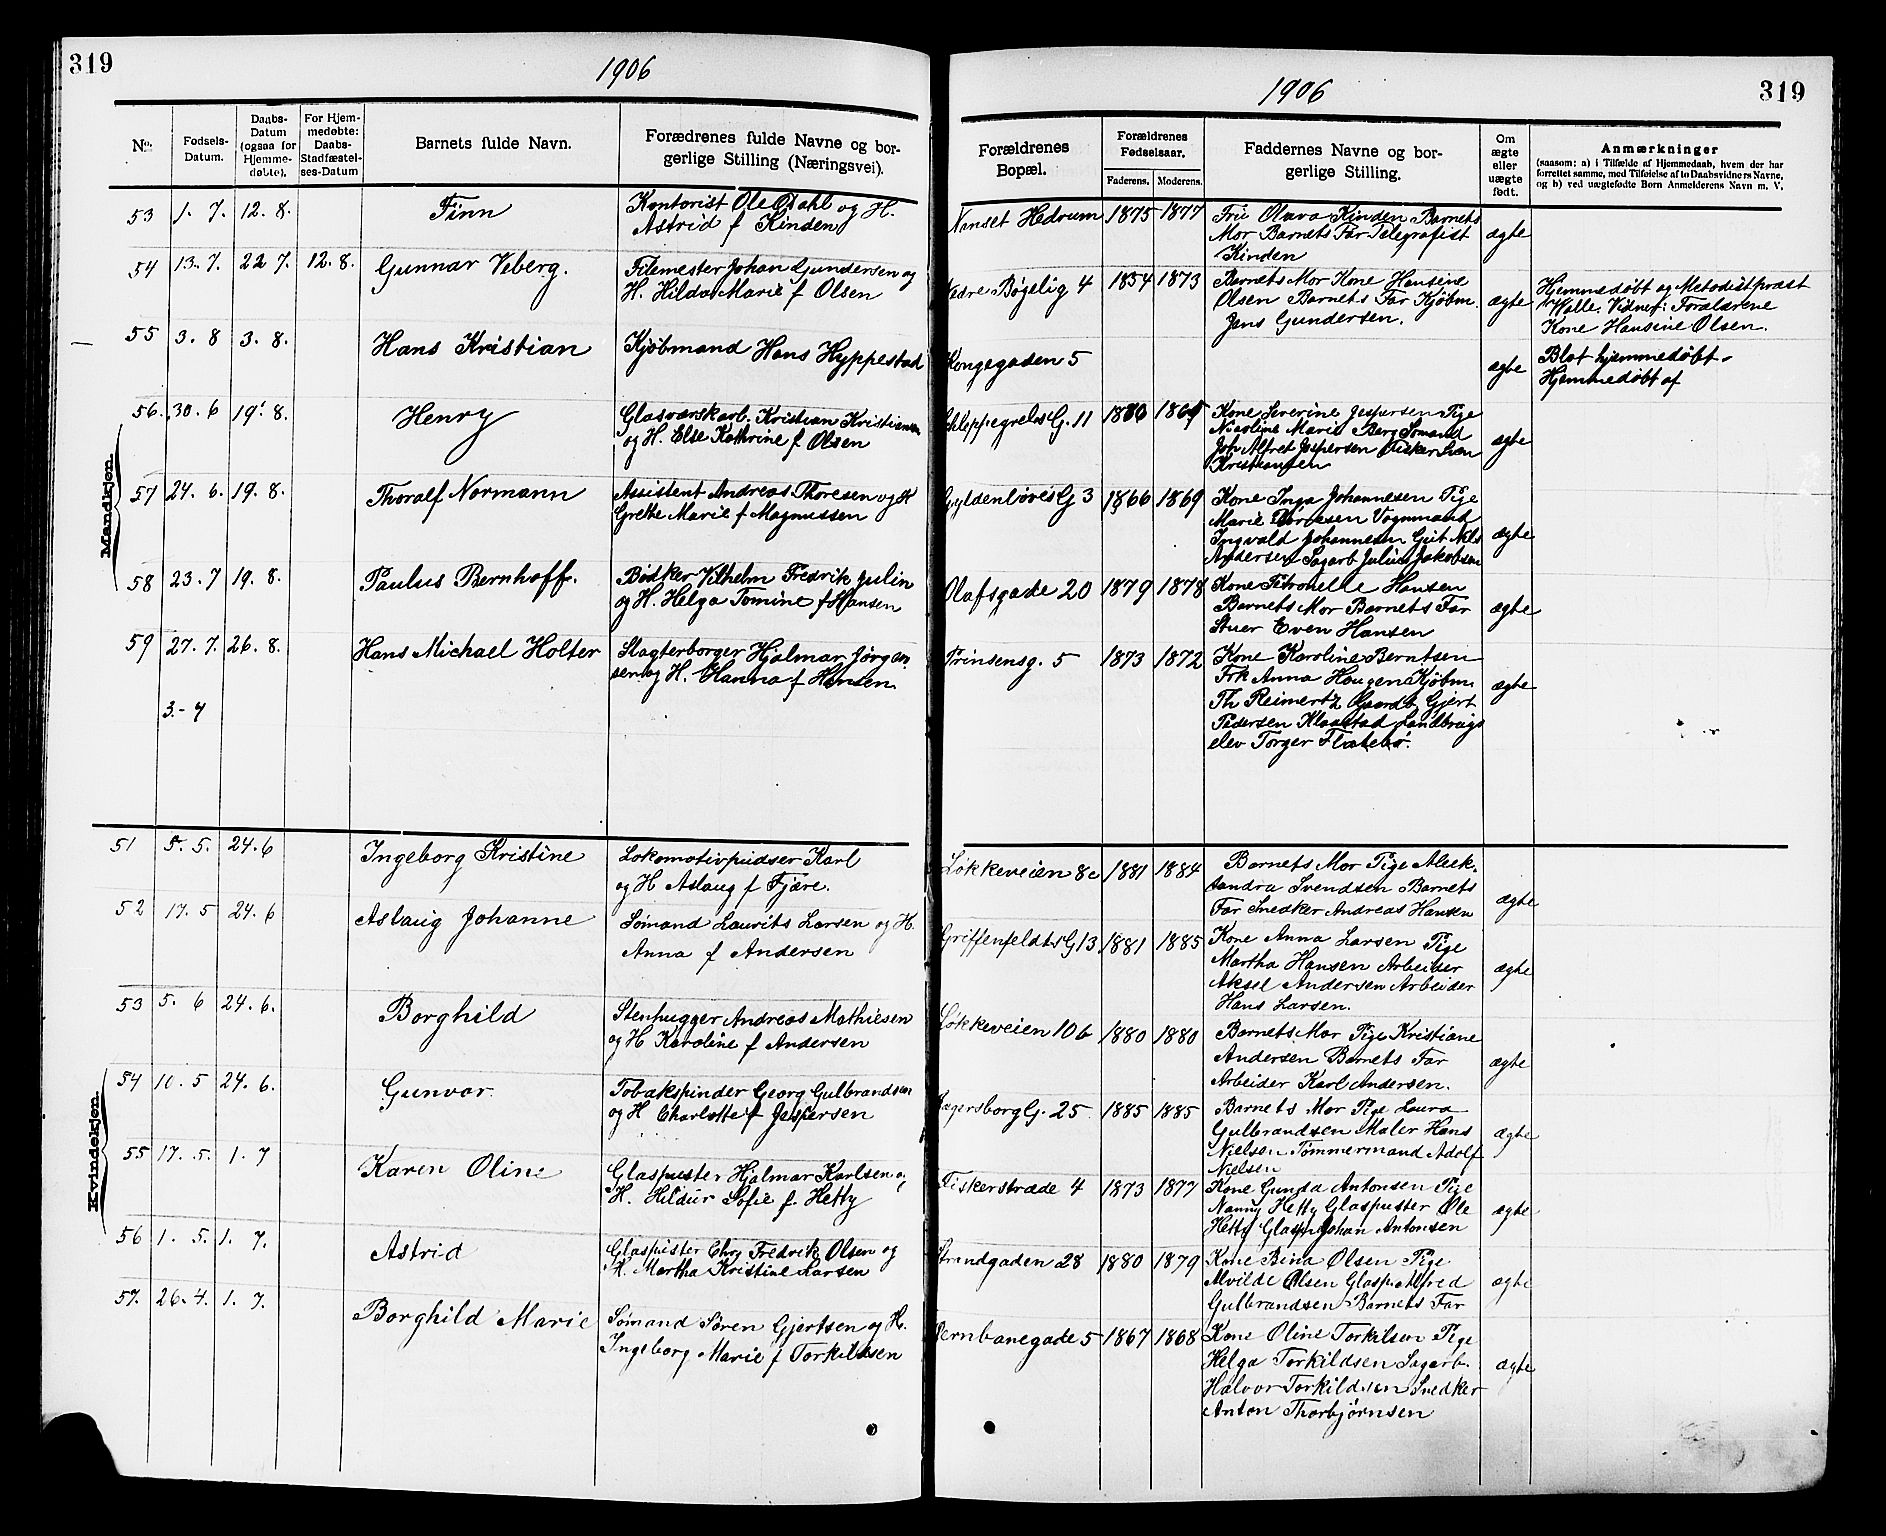 319
1906
1906
319
No.
Fødsels-
Datum.
Daabs-
Datum
(ogsaa for
Hjemme-
døbte).
For Hjem-
medøbte:
Daabs-
Stadfæstel-
ses-Datum
Barnets fulde Navn.
Forædrenes fulde Navne og bor-
gerlige Stilling (Næringsvei).
Forældrenes
Bopæl.
Forældrenes
Fødselsaar.
Faderens. Moderens.
Faddernes Navne og bor-
gerlige Stilling.
Om
ægte
eller
uægte
født.
Anmærkninger
(saasom: a) i Tilfælde af Hjemmedaab, hvem der har
forrettet samme, med Tilføielse af to Daabsvidners Navne,
og b) ved uægtefødte Børn Anmelderens Navn m. V.
Mandkjøn.
53 1. 7. 12. 8. Finn
Kontorist Ole Dahl og H.
Astrid f Kinden
Nanset Hedrum 1875 1877
Fru Olava Kinden Barnets
Mor Barnets Far Telegrafist
Kinden
ægte
54 13. 7. 22 7. 12. 8. Gunnar Veberg.
Filemester Johan Gundersen og
H. Hilda Marie f Olsen
Nedre Bøgelig 4 1854 1873
Barnets Mor Kone Hansine
Olsen Barnets Far Kjøbm.
Jens Gundersen.
ægte
Hjemmedøbt og Metodistpræst
Wolle: Vidner: Forældrene
Kone Hansine Olsen.
55 3. 8 3. 8. Hans Kristian
Kjøbmand Hans Hyppestad
Kongegaden 5
ægte
Blot hjemmedøbt
Hjemmedøbt af
56. 30. 6 19. 8. Henry
Glasværskarb. Kristian Kristiansen
og H. Else Kathrine f Olsen
Schleppegrels G. 11 1869
Kone Severine Jespersen Pige
Nicoline Marie Berg Sømand
Joh. Alfred Jespersen Fisker
Kristiansen
ægte
57 24. 6. 19. 8. Thoralf Normann
Assistent Andreas Thoresen og H
Grethe Marie f Magnussen
Gyldenløves G 3 1866 1869
Kone Inga Johannesen Pige
Marie Thoresen Vognmand
Ingvald Johannesen Nils
Andersen Sagarb Julius Jakobsen
ægte
58 23. 7 19. 8. Paulus Bernhoff.
Bødker Vilhelm Fredrik Julin
og H. Helga Tomine f Hansen
Olafsgade 20 1879 1878
Kone Petronelle Hansen
Barnets Mor Barnets Far
Stuer Even Hansen
ægte
59 27. 7. 26. 8. Hans Michael Holter
Slagterborger Hjalmar Jørgen
sen og H. Hanna f Hansen
Prinsensg. 5 1873 1872
Kone Karoline Berntsen
Frk Anna Haugen Kjøbm.
Th Reimertz Gaardb. Gjert
Pedersen Klaastad Landbrugs
elev Torger Flatebø.
ægte
3.-7
Kvindekjøn.
51 5. 5. 24. 6 Ingeborg Kristine
Lokomotivpudser Karl
og H Aslaug f Fjære.
Løkkeveien 8c 1881 1884
Barnets Mor Pige Alek-
sandra Svendsen Barnets
Far Snedker Andreas Hansen
ægte
52 17. 5 24. 6 Aslaug Johanne
Sømand Laurits Larsen og H.
Anna f Andersen
Griffenfeldts G 13 1881 1885
Kone Anna Larsen Pige
Martha Hansen Arbeider
Aksel Andersen Arbeider
Hans Larsen.
ægte
53 5. 6 24. 6. Borghild
Stenhugger Andreas Mathiesen
og H Karoline f Andersen
Løkkeveien 10b 1880 1880
Barnets Mor Pige Kristiane
Andersen Barnets Far
Arbeider Karl Andersen.
ægte
54 10. 5 24. 6. Gunvor.
Tobakspinder Georg Gulbrandsen
og H Charlotte f Jespersen
Jegersborg G. 25 1885 1885
Barnets Mor Pige Laura
Gulbrandsen Maler Hans
Nielsen Tømmermand Adolf
Nielsen
ægte
55 17. 5. 1. 7 Karen Oline
Glaspuster Hjalmar Karlsen og
H. Hildur Sofie f. Hetty
Fiskerstræde 4 1873 1877
Kone Gunda Antonsen Pige
Nanny Hetty Glaspuster Ole
Hetty Glasp Johan Antonsen
ægte
56 1. 5. 1. 7. Astrid
Glaspuster Chr Fredrik Olsen og
H. Martha Kristine Larsen
Strandgaden 28 1880 1879
Kone Bina Olsen Pige
Alvilde Olsen Glasp Alfred
Gulbrandsen Barnets Far
ægte
57. 26. 4. 1. 7. Borghild Marie
Sømand Søren Gjertsen og H.
Ingeborg Marie f Torkildsen
Jernbanegade 5 1867 1868
Kone Oline Torkilsen Pige
Helga Torkildsen Sagarb.
Halvor Torkildsen Snedker
Anton Thorbjørnsen
ægte